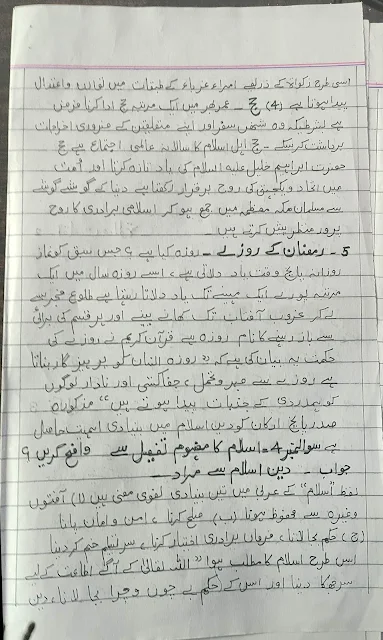 اسی طرح زکواۃ کے ذریعے امراء غرباء کے طبقات میں توازن واعتدال
پیدا ہوتا ہے (4) حج ۔ عمر بھر میں ایک مرتبہ حج ادا کرنا فرض
ہے بشرطیکہ وہ شخص سفر اور اپنے متعلقین کے ضروری اخراجات
برداشت کر سکے ۔ حج اہل اسلام کا سالانہ عالمی اجتماع ہے حج
حضرت ابراہیم خلیل علیہ اسلام کی یاد تازہ کرتا اور امت
میں اتحاد ویکجہتی کی روح برقرار رکھتا ہے دنیا کے گوشے گوشے
سے مسلمان مکہ معظمہ میں جمع ہو کر اسلامی برادری کا روح
پرور منظر پیش کرتے ہیں
5 ۔ رمضان کے روزے ۔ روزہ کیا ہے ؟ جس سبق کو نماز
روزانہ پانچ وقت یاد دلاتی ہے ، اسے روزہ سال میں ایک
مرتبہ پورے ایک مہینے تک یاد دلاتا رہتا ہے طلوع فجر سے
لے کر غروب آفتاب تک کھانے پینے اور ہر قسم کی برائی
سے باز رہنے کا نام روزہ ہے قرآن کریم نے روزے کی
حکمت یہ بیان کی ہے کہ " روزہ انسان کو پرہیز گار بناتا
ہے روزے سے صبر و تحمل ، جفاکشی اور نادار لوگوں
کو ہمدردی کے جذبات پیدا ہوتے ہیں " مذکورہ
صدر پانچ ارکان کو دین اسلام میں بنیادی اہمیت حاصل
ہے سوال نمبر 4 = اسلام کا مفہوم تفصیل سے واضح کریں ؟
جواب ۔ دین اسلام سے مراد
لفظ "اسلام" کے عربی میں تین بنیادی لغوی معنی ہیں (ا) آفتوں
وغیرہ سے محفوظ ہونا (ب) صلح کرنا ، امن و امان پانا
(ج) حکم بجا لانا ، فرماں برداری اختیار کرنا ، سر تسلیم خم کر دینا
اس طرح اسلام کا مطلب ہوا " اللہ تعالیٰ کے آگے اطاعت کے لیے
سر جھکا دینا اور اس کے حکم بے چوں و چرا بجا لانا ، دین